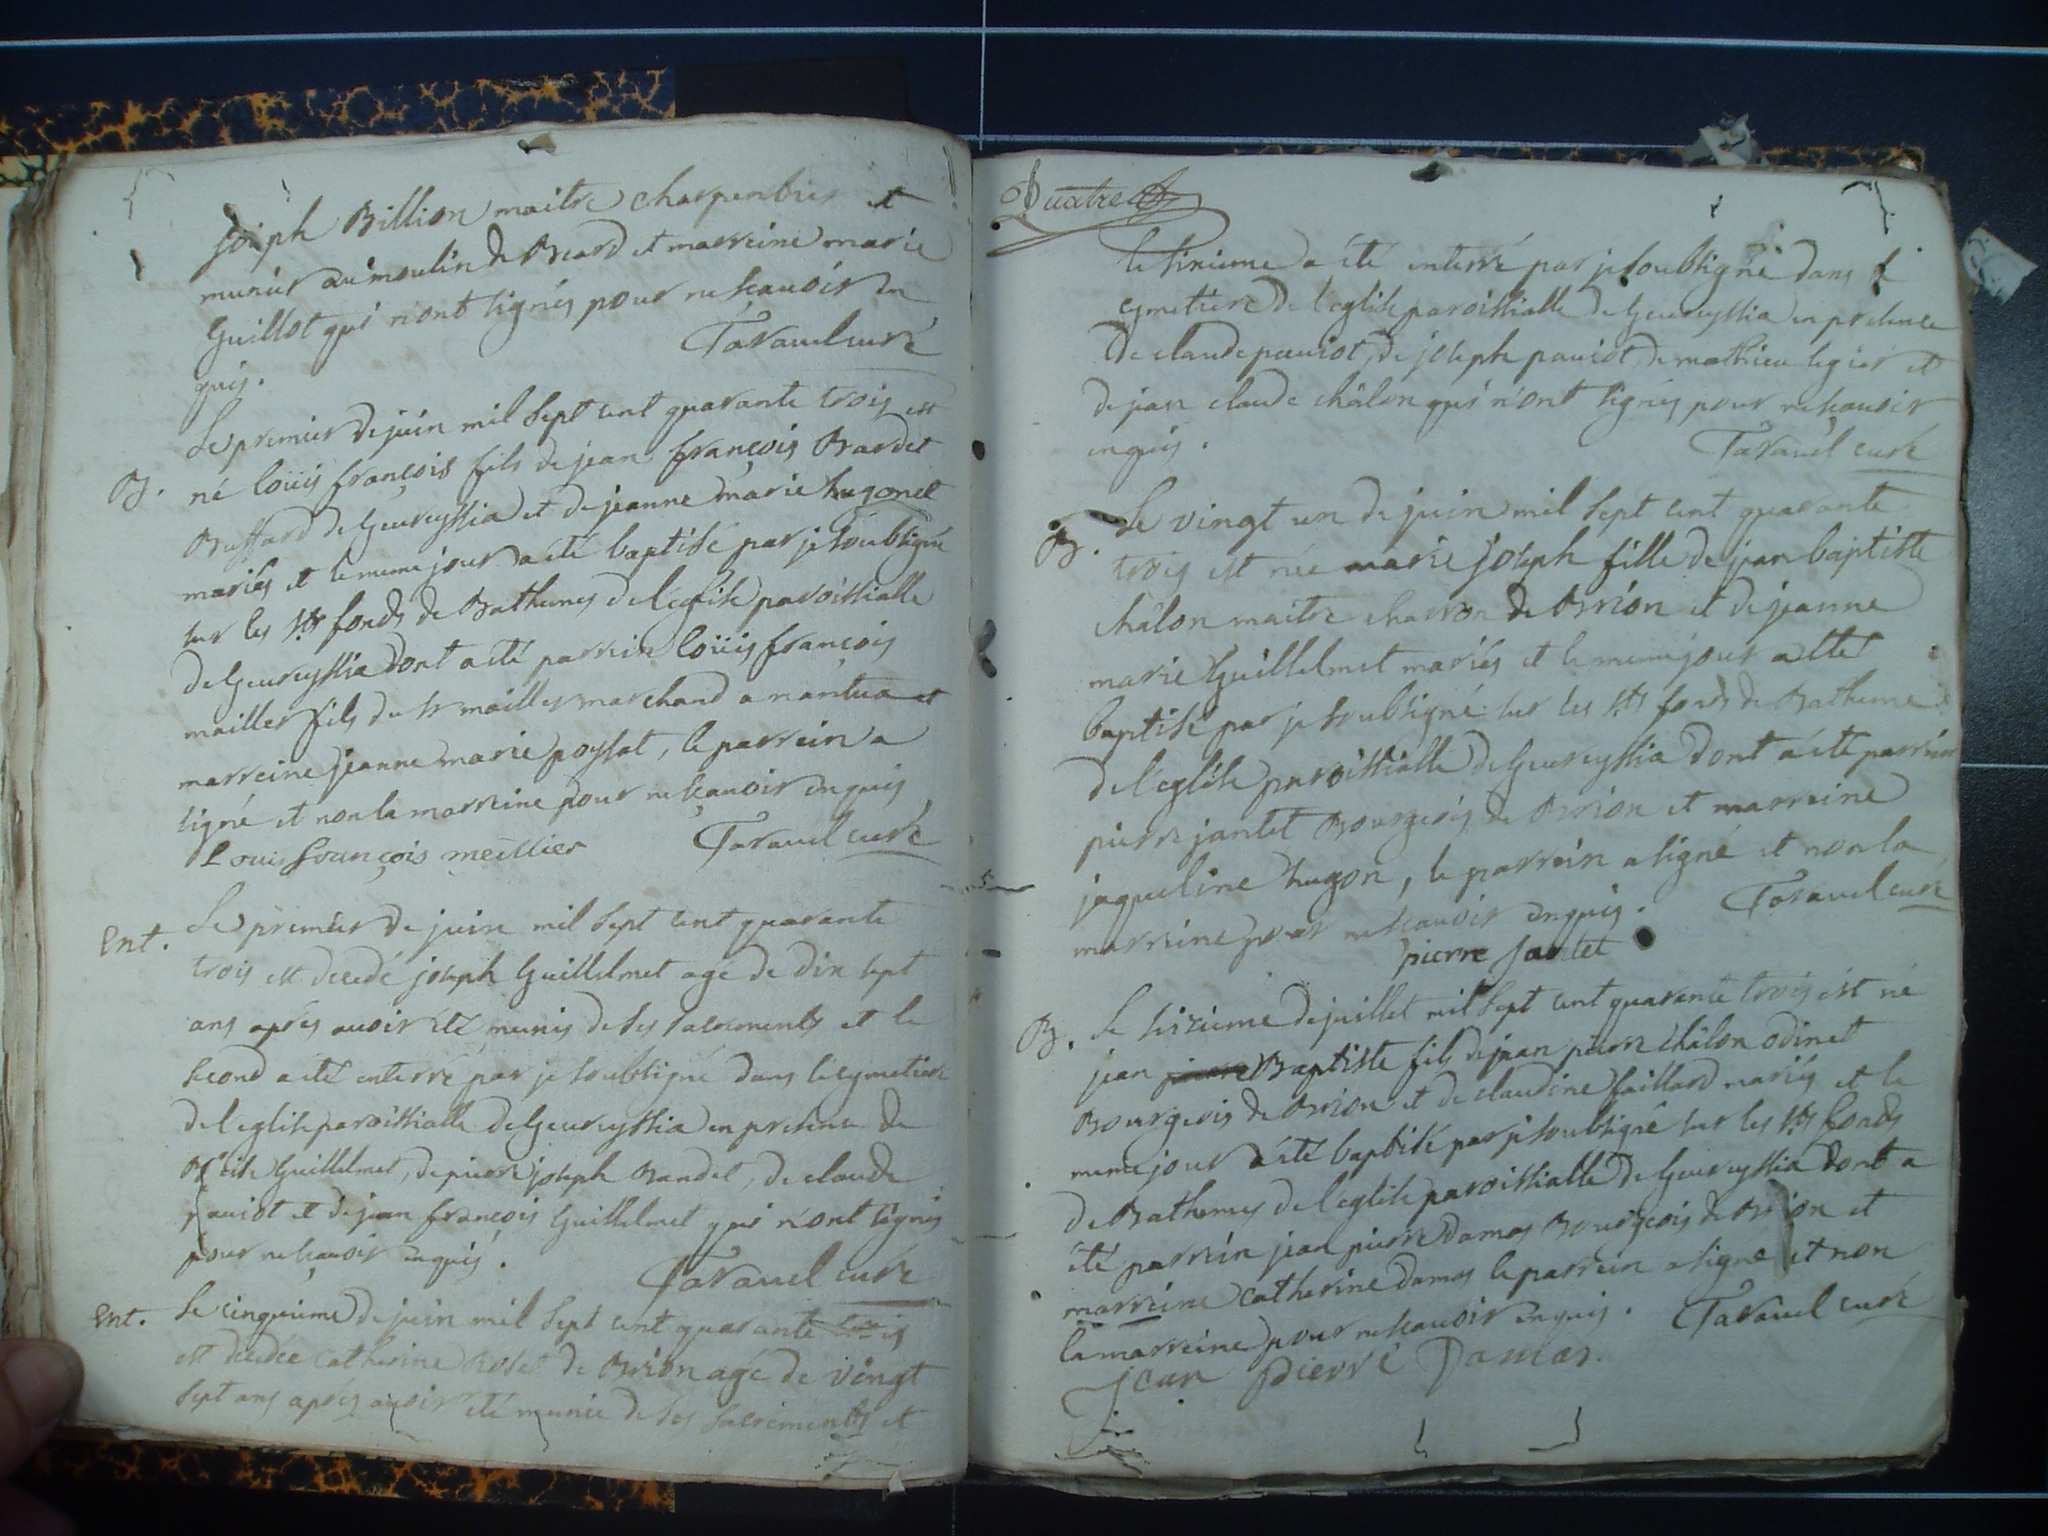 joseph Billion maitre charpentier et
munier au moulin de Beard et marreine marie
Guillot qui n'ont signés pour ne scauoir en
quis. Tarauel curé
B. Le premier de juin mil sept cent quarante trois est
né loüis françois fils de jean françois Bardet
Buffard de Geureyssia et de jeanne marie hugonet
mariés et le meme jour a été baptisé par je soubsigné
sur les sts fonds de Bathemes de l'eglise paroissialle
de Geureyssia dont a été parrein loüis françois
mailler fils du sr mailler marchand a nantua et
marreine jeanne marie poysat, le parrein a
signé et non la marreine pour ne scauoir enquis
Louis François meillier Tarauel curé
Ent. Le premier de juin mil sept cent quarante
trois est decedé joseph Guillelmet age de dix sept
ans aprés auoir été munis de ses sacrements et le
second a été enterré par je soubsigné dans le cymetiere
de l'eglise paroissialle de Geureyssia en presence de
Guillelmet, de pierre joseph Bandet, de claude
pauiot et de jean françois Guillelmet qui n'ont signés
pour ne scauoir enquis. Tarauel curé
Ent. Le cinquieme de juin mil sept cent quarante trois
est decedée catherine de Brion agé de vingt
sept ans aprés auoir été munie de ses sacrements et
Quatre
le sixieme a été enterré par je soubsigné dans le
cymetiere de l'eglise paroissialle de Geureyssia en presence
de claude pauiot, de joseph pauiot, de mathieu legier et
de jean claude châlon qui n'ont signés pour ne scauoir
enquis. Tarauel curé
B. Le vingt un de juin mil sept cent quarante
trois est née marie joseph fille de jean baptiste
châlon maitre charron de Brion et de jeanne
marie Guillelmet mariés et le meme jour a été
baptisé par je soubsigné sur les sts fonds de Batheme
de l'eglise paroissialle de Geureyssia dont a été parrein
pierre jantet Bourgeois de Brion et marreine
jaqueline hugon, le parrein a signé et non la
marreine pour ne scauoir enquis. Tarauel curé
pierre Jantet
B. Le sizieme de juillet mil sept cent quarante trois est né
jean pierre Baptiste fils de jean pierre châlon odinet
Bourgeois de Brion et de claudine faillard mariés et le
meme jour a été baptisé par je soubsigné sur les sts fonds
de Bathemes de l'eglise paroissialle de Geureyssia dont a
été parrein jean pierre damas Bourgeois de Brion et
marreine catherine damas le parrein a signé et non
la marreine pour ne scauoir enquis. Tarauel curé
Jean Pierre Damas.